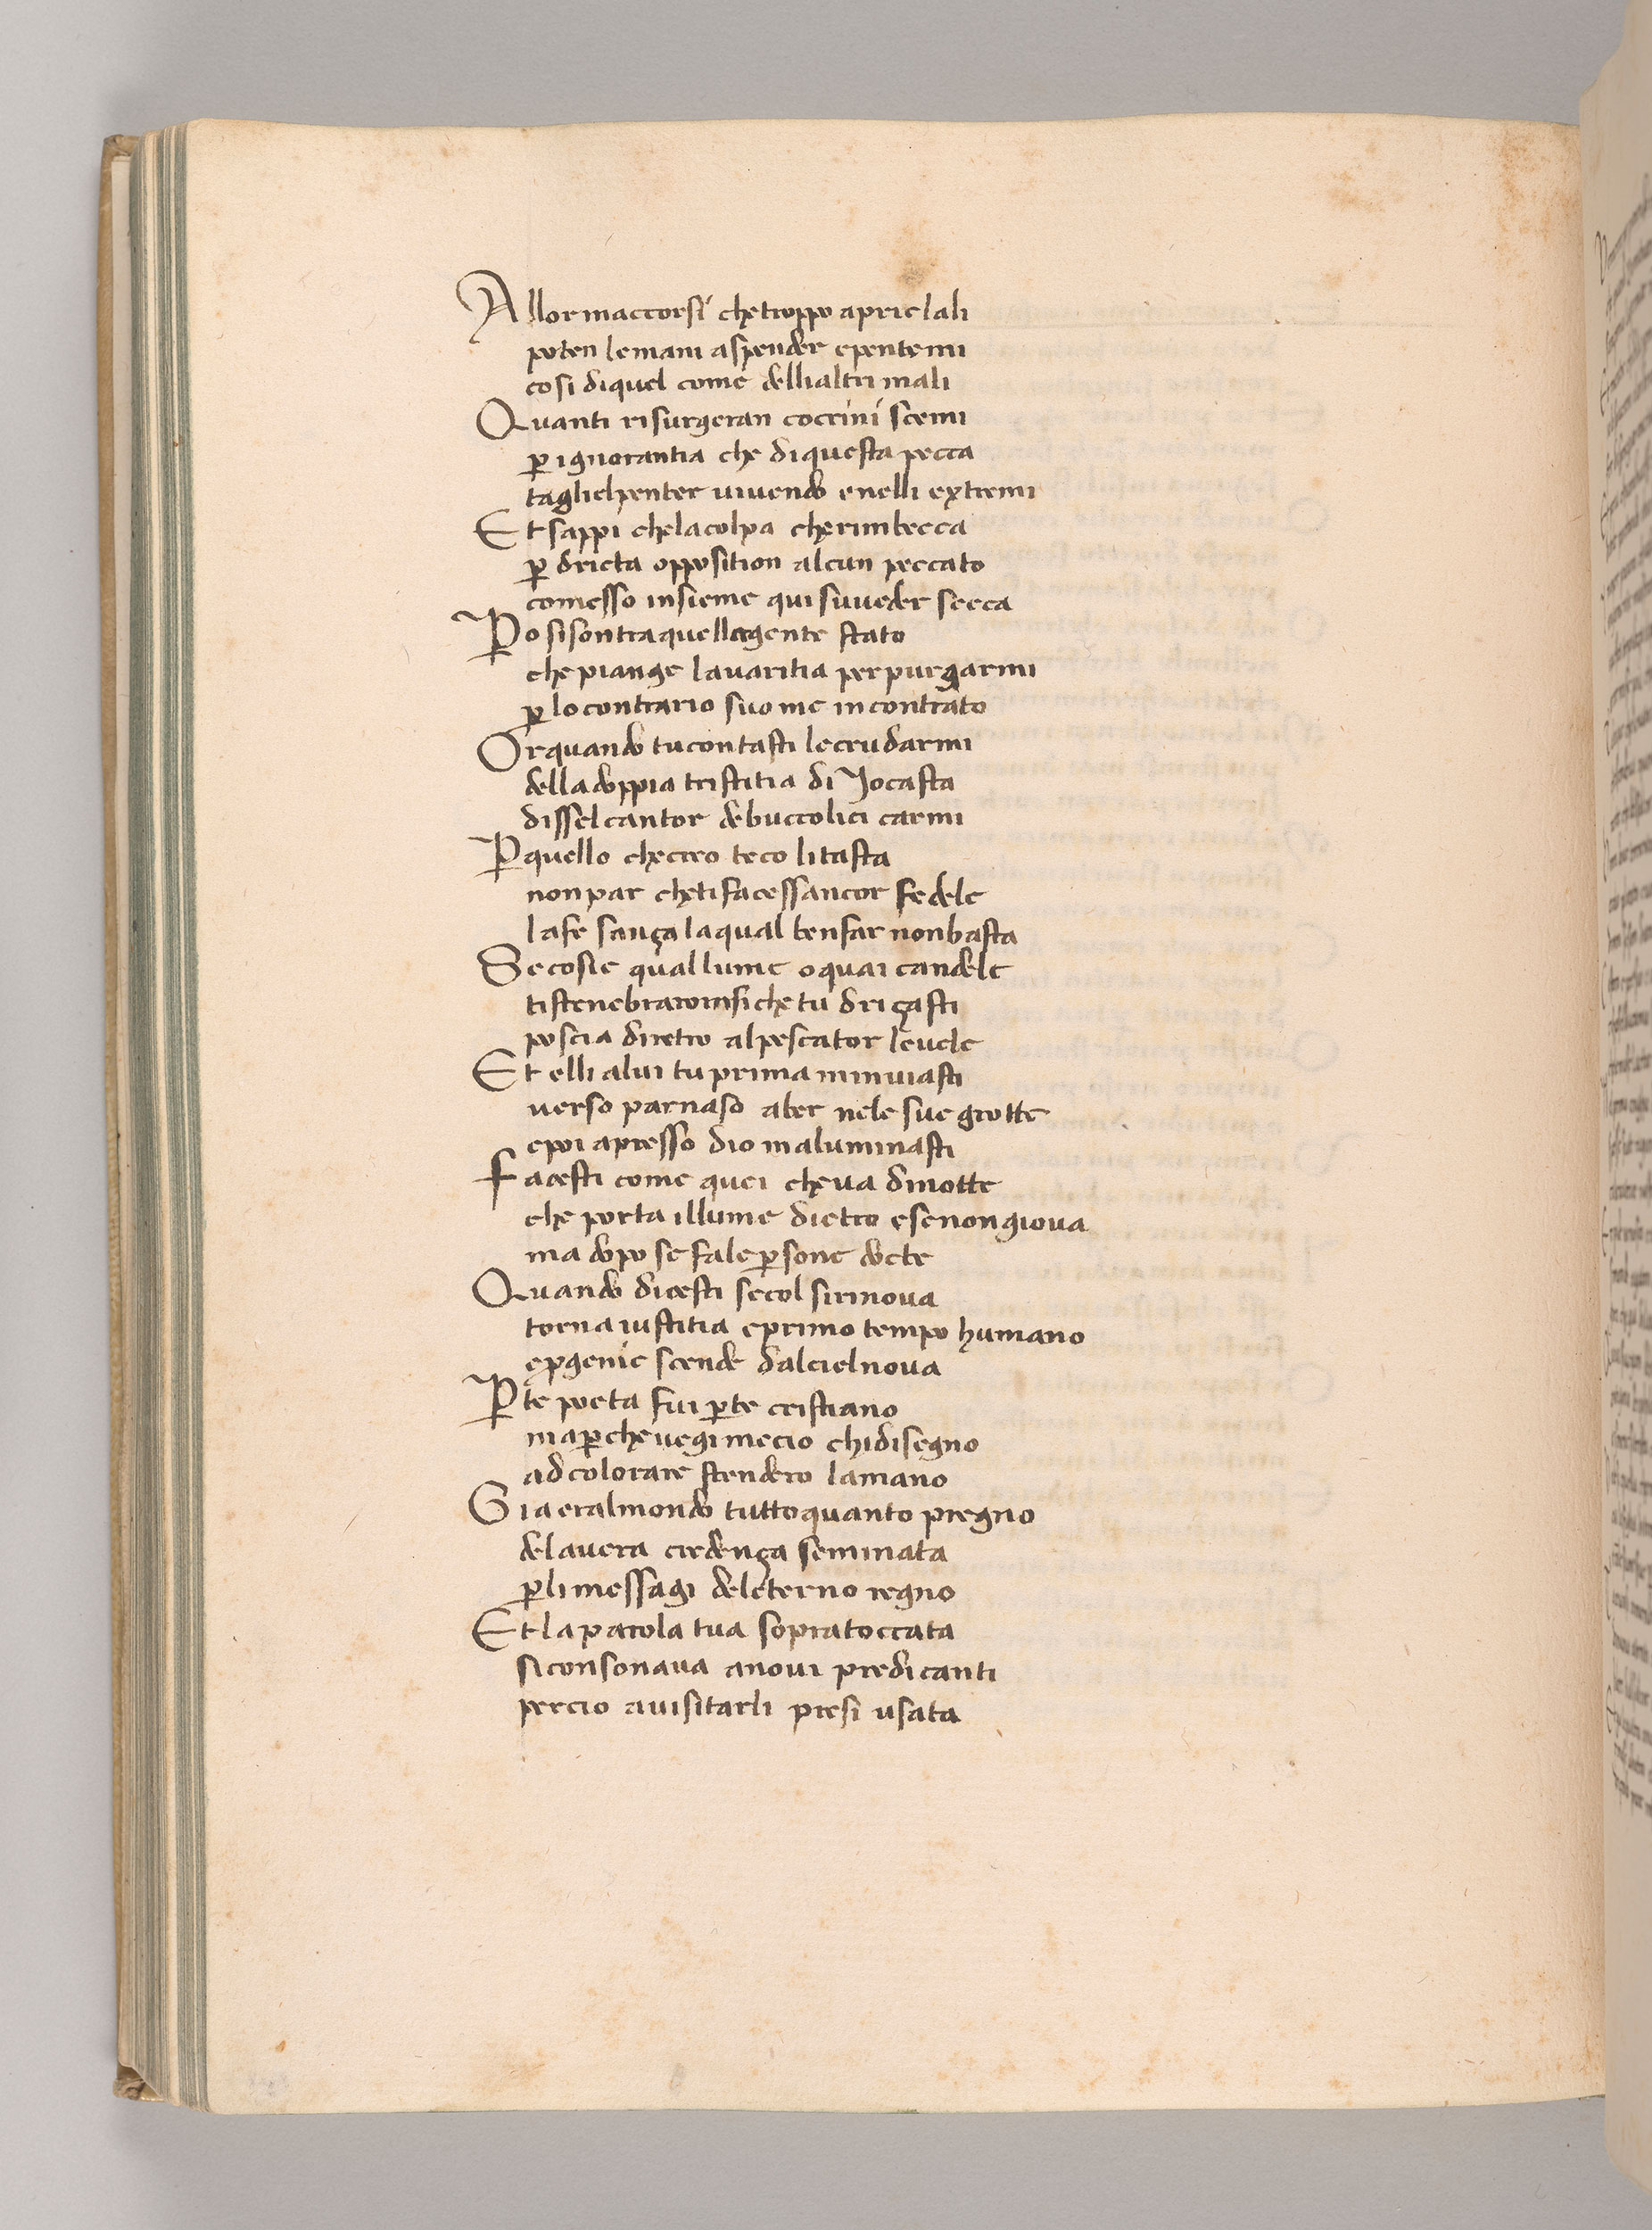 Allor maccorsi che troppo aprir lali
poten le mani aspender epentemi
cosi diquel come delli altri mali
Quanti risurgeran coccrini scemi
p ignorantia che di questa pecca
taglielpenter uiuendo enelli extremi
Et sappi chela colpa che rimbecca
p dricta opposition alcun peccato
comesso insieme qui suuueder secca
Po si son tra quella gente stato
che piange lauaritia per purgarmi
p lo contrario suo me incontrato
Or quando tu contasti le crudarmi
della doppia tristitia di Jocasta
dissel cantor de buccolici carmi
P quello che creo teco li tasta
non par che ti facessancor fedele
la fe sança la qual ben far non basta
Se cosie qual lume o quai candele
ti stenebraron si che tu driçasti
poscia diretro al pescator leuele
Et elli alui tu prima minuiasti
uerso parnaso aber nele sue grotte
epoi apresso dio maluminasti
Facesti come quei che ua dinotte
che porta illume dietro e se non gioua
ma dopo se fa le psone docte
Quando dicesti secol si rinoua
torna iustitia e primo tempo humano
e pgenie scende dal ciel noua
P te poeta fui p te cristiano
ma p che uegi mecio chi disegno
ad colorare stendero la mano
Gia eral mondo tutto quanto pregno
de la uera credença seminata
p li messagi del eterno regno
Et la parola tua sopra toccata
si consonaua anoui predicanti
percio auisitarli presi usata